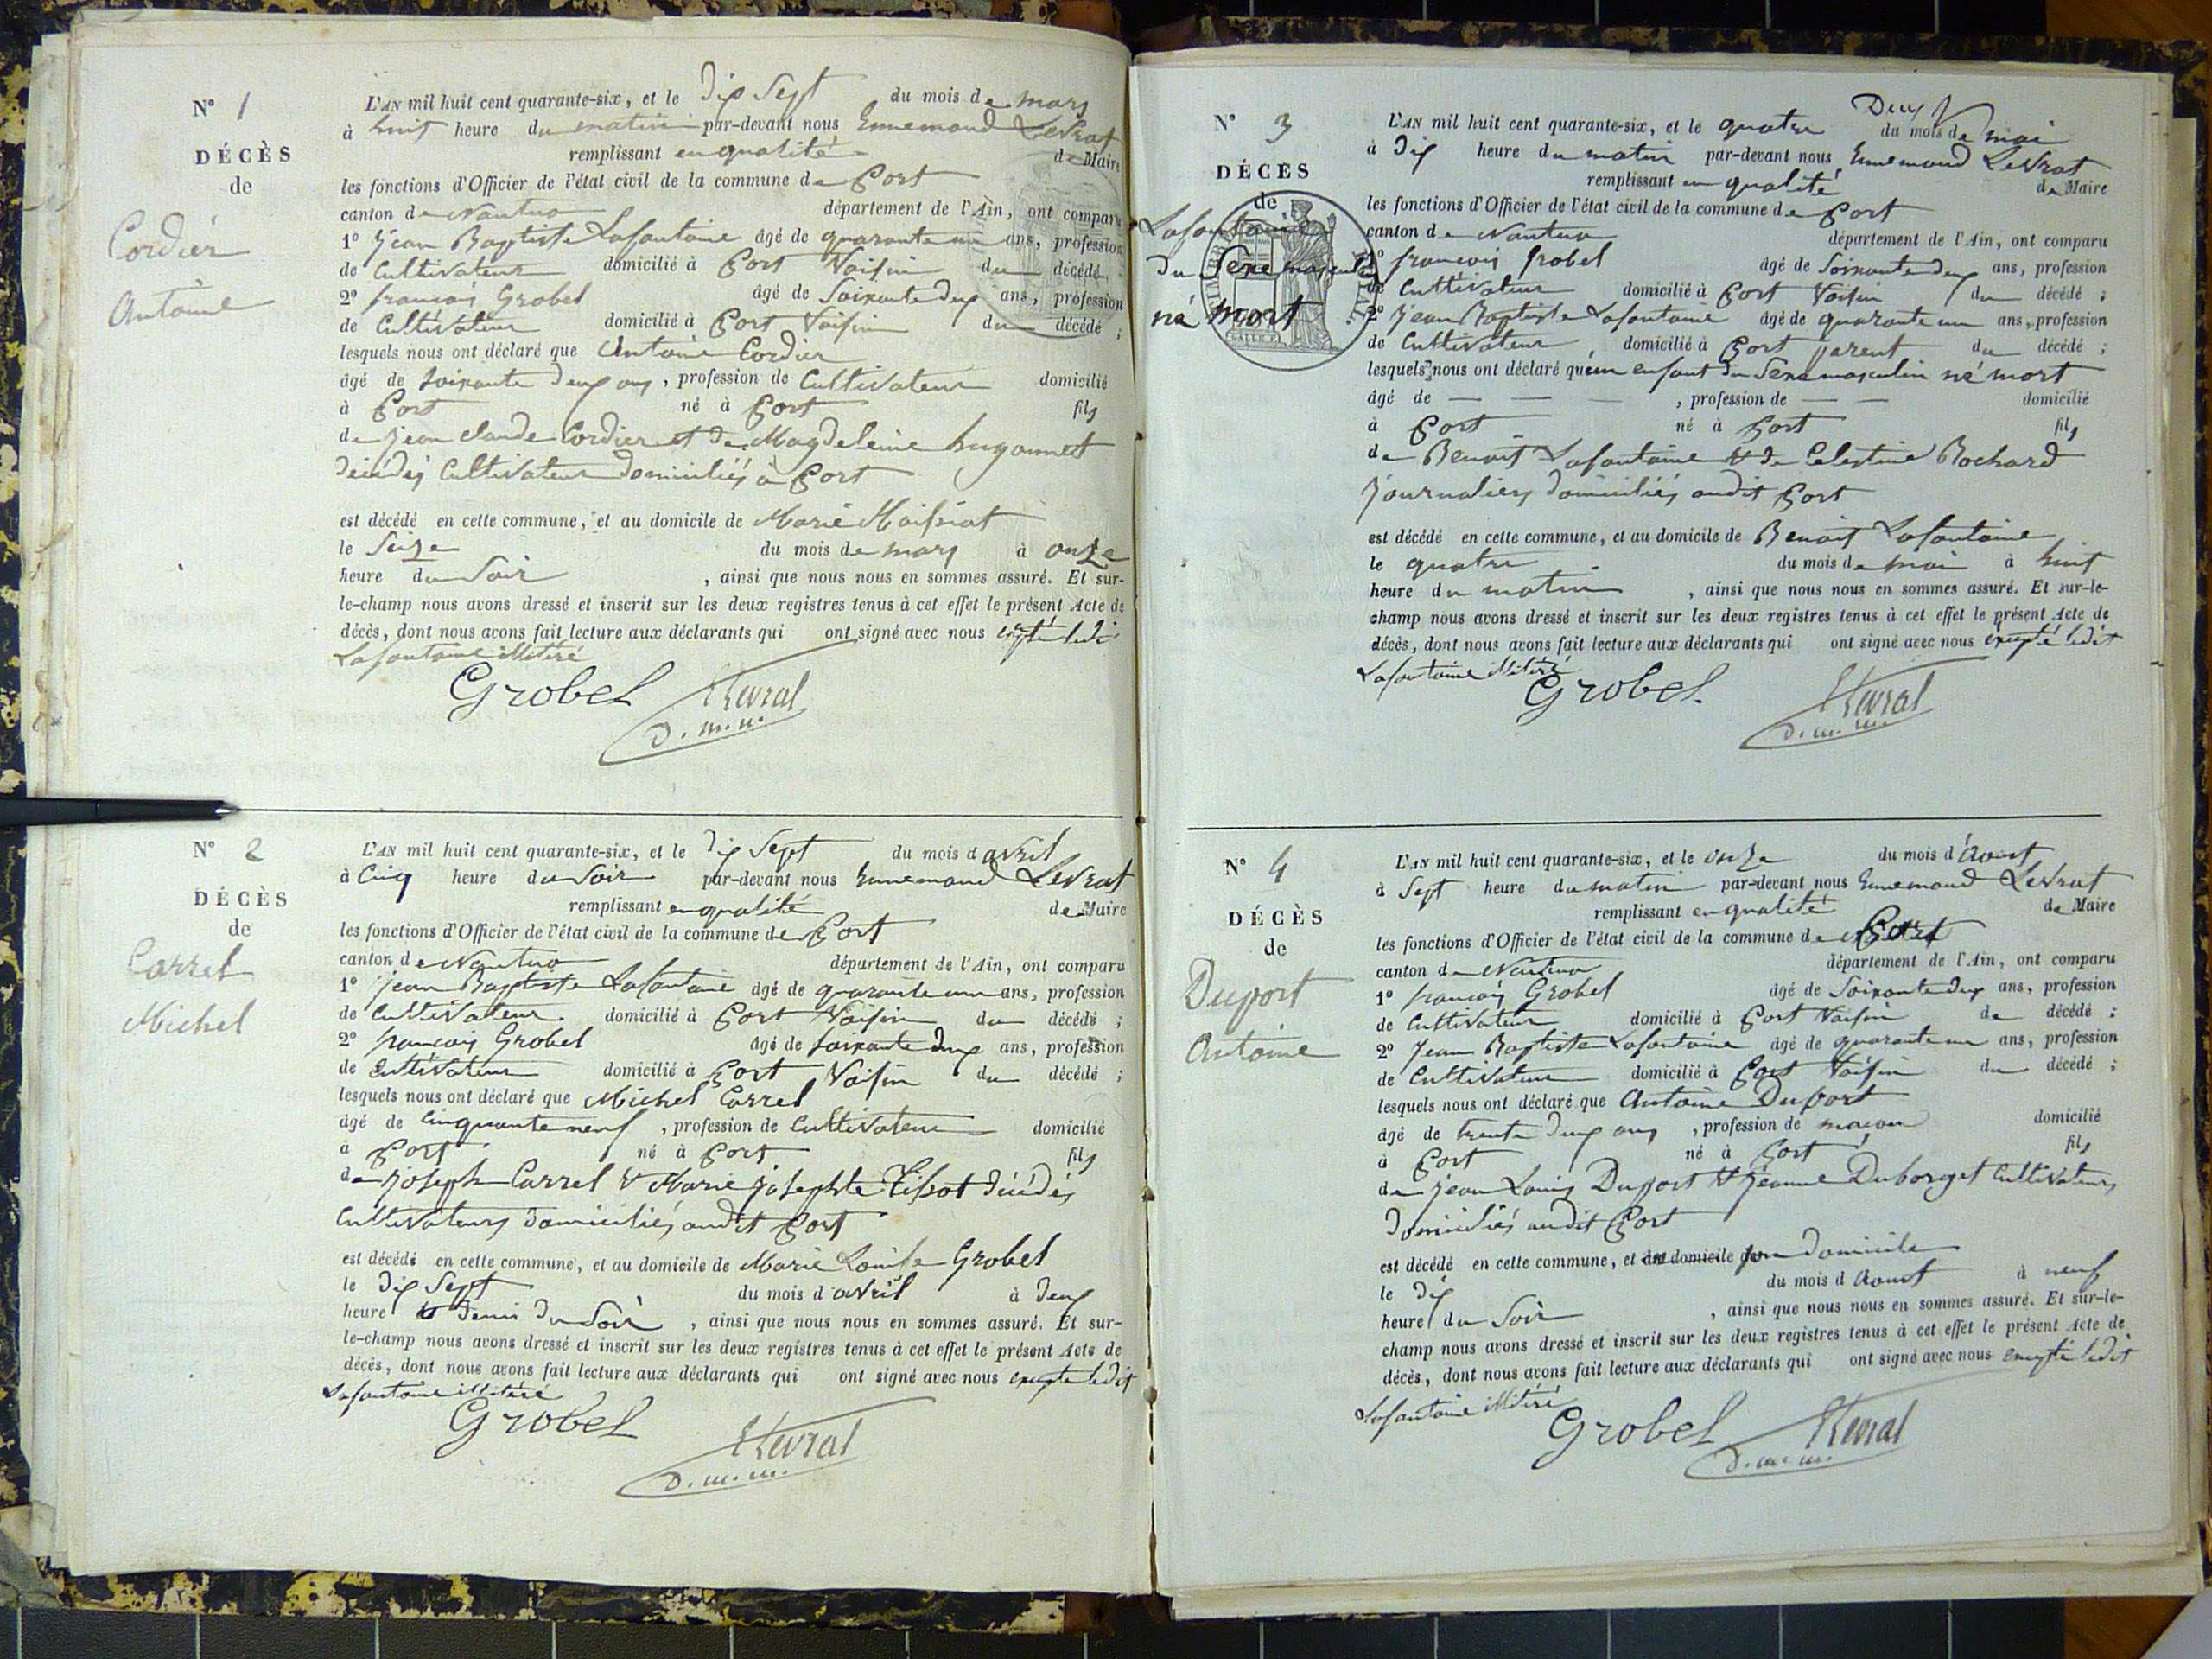 N° 1
DÉCÈS
de
Cordier
Antoine
L'AN mil huit cent quarante-six, et le dix Sept du mois de mars
à huit heure du matin par-devant nous Ennemond Levrat
remplissant en qualité de Maire
les fonctions d'Officier de l'état civil de la commune de Port
canton de Nantua département de l'Ain, ont comparu
1° Jean Baptiste Lafontaine âgé de quarante un ans, profession
de Cultivateur domicilié à Port Voisin du décédé
2° françois Grobel âgé de Soixante deux ans, profession
de Cultivateur domicilié à Port Voisin du décédé ;
lesquels nous ont déclaré que Antoine Cordier
âgé de soixante deux ans, profession de Cultivateur domicilié
à Port né à Port fils
de Jean Claude Cordier et de Magdeleine hugonnet
décédés Cultivateurs domiciliés à Port
est décédé en cette commune, et au domicile de Marie Maissiat
le Seize du mois de mars à onze
heure du Soir , ainsi que nous nous en sommes assuré. Et sur-
le-champ nous avons dressé et inscrit sur les deux registres tenus à cet effet le présent Acte de
décès, dont nous avons fait lecture aux déclarants qui ont signé avec nous excepté ledit
Lafontaine illitéré
Grobel Levrat
d. m. m.
N° 2
DÉCÈS
de
Carrel
Michel
L'AN mil huit cent quarante-six, et le dix Sept du mois d avril
à Cinq heure du Soir par-devant nous Ennemond Levrat
remplissant en qualité de Maire
les fonctions d'Officier de l'état civil de la commune de Port
canton de Nantua département de l'Ain, ont comparu
1° Jean Baptiste Lafontaine âgé de quarante un ans, profession
de Cultivateur domicilié à Port Voisin du décédé ;
2° françois Grobel âgé de soixante deux ans, profession
de Cultivateur domicilié à Port Voisin du décédé ;
lesquels nous ont déclaré que Michel Carrel
âgé de Cinquante neuf , profession de Cultivateur domicilié
à Port né à Port fils
de Joseph Carrel & Marie Josephte Tissot décédés
Cultivateurs domiciliés audit Port
est décédé en cette commune, et au domicile de Marie Louise Grobel
le dix Sept du mois d avril à deux
heure & demi du Soir , ainsi que nous nous en sommes assuré. Et sur-
le-champ nous avons dressé et inscrit sur les deux registres tenus à cet effet le présent Acte de
décès, dont nous avons fait lecture aux déclarants qui ont signé avec nous excepté ledit
Lafontaine illitéré
Grobel Levrat
d. m. m.
N° 3
DÉCÈS
de
Lafontaine
du Sexe masculin
né mort
L'AN mil huit cent quarante-six, et le quatre du mois de mai
à dix heure du matin par-devant nous Ennemond Levrat
remplissant en qualité de Maire
les fonctions d'Officier de l'état civil de la commune de Port
canton de Nantua département de l'Ain, ont comparu
1° françois Grobel âgé de Soixante deux ans, profession
de Cultivateur domicilié à Port Voisin du décédé ;
2° Jean Baptiste Lafontaine âgé de quarante un ans, profession
de Cultivateur domicilié à Port parent du décédé ;
lesquels nous ont déclaré qu'un enfant du Sexe masculin né mort
âgé de — — — , profession de — — domicilié
à Port né à Port fils
de Benoit Lafontaine & de Celestine Rochard
Journaliers domiciliés audit Port
est décédé en cette commune, et au domicile de Benoit Lafontaine
le quatre du mois de mai à huit
heure du matin , ainsi que nous nous en sommes assuré. Et sur-le-
champ nous avons dressé et inscrit sur les deux registres tenus à cet effet le présent Acte de
décès, dont nous avons fait lecture aux déclarants qui ont signé avec nous excepté ledit
Lafontaine illitéré
Grobel Levrat
d. m. m.
N° 4
DÉCÈS
de
Duport
Antoine
L'AN mil huit cent quarante-six, et le onze du mois d'Aout
à Sept heure du matin par-devant nous Ennemond Levrat
remplissant en qualité de Maire
les fonctions d'Officier de l'état civil de la commune de Port
canton de Nantua département de l'Ain, ont comparu
1° françois Grobel âgé de Soixante deux ans, profession
de Cultivateur domicilié à Port Voisin du décédé ;
2° Jean Baptiste Lafontaine âgé de quarante un ans, profession
de Cultivateur domicilié à Port Voisin du décédé ;
lesquels nous ont déclaré que Antoine Duport
âgé de trente deux ans , profession de macon domicilié
à Port né à Port fils
de Jean Louis Duport & Jeanne Duborget Cultivateurs
domiciliés audit Port
est décédé en cette commune, et au domicile de son domicile
le dix du mois d Aout à neuf
heure du Soir , ainsi que nous nous en sommes assuré. Et sur-le-
champ nous avons dressé et inscrit sur les deux registres tenus à cet effet le présent Acte de
décès, dont nous avons fait lecture aux déclarants qui ont signé avec nous excepté ledit
Lafontaine illitéré
Grobel Levrat
d. m. m.